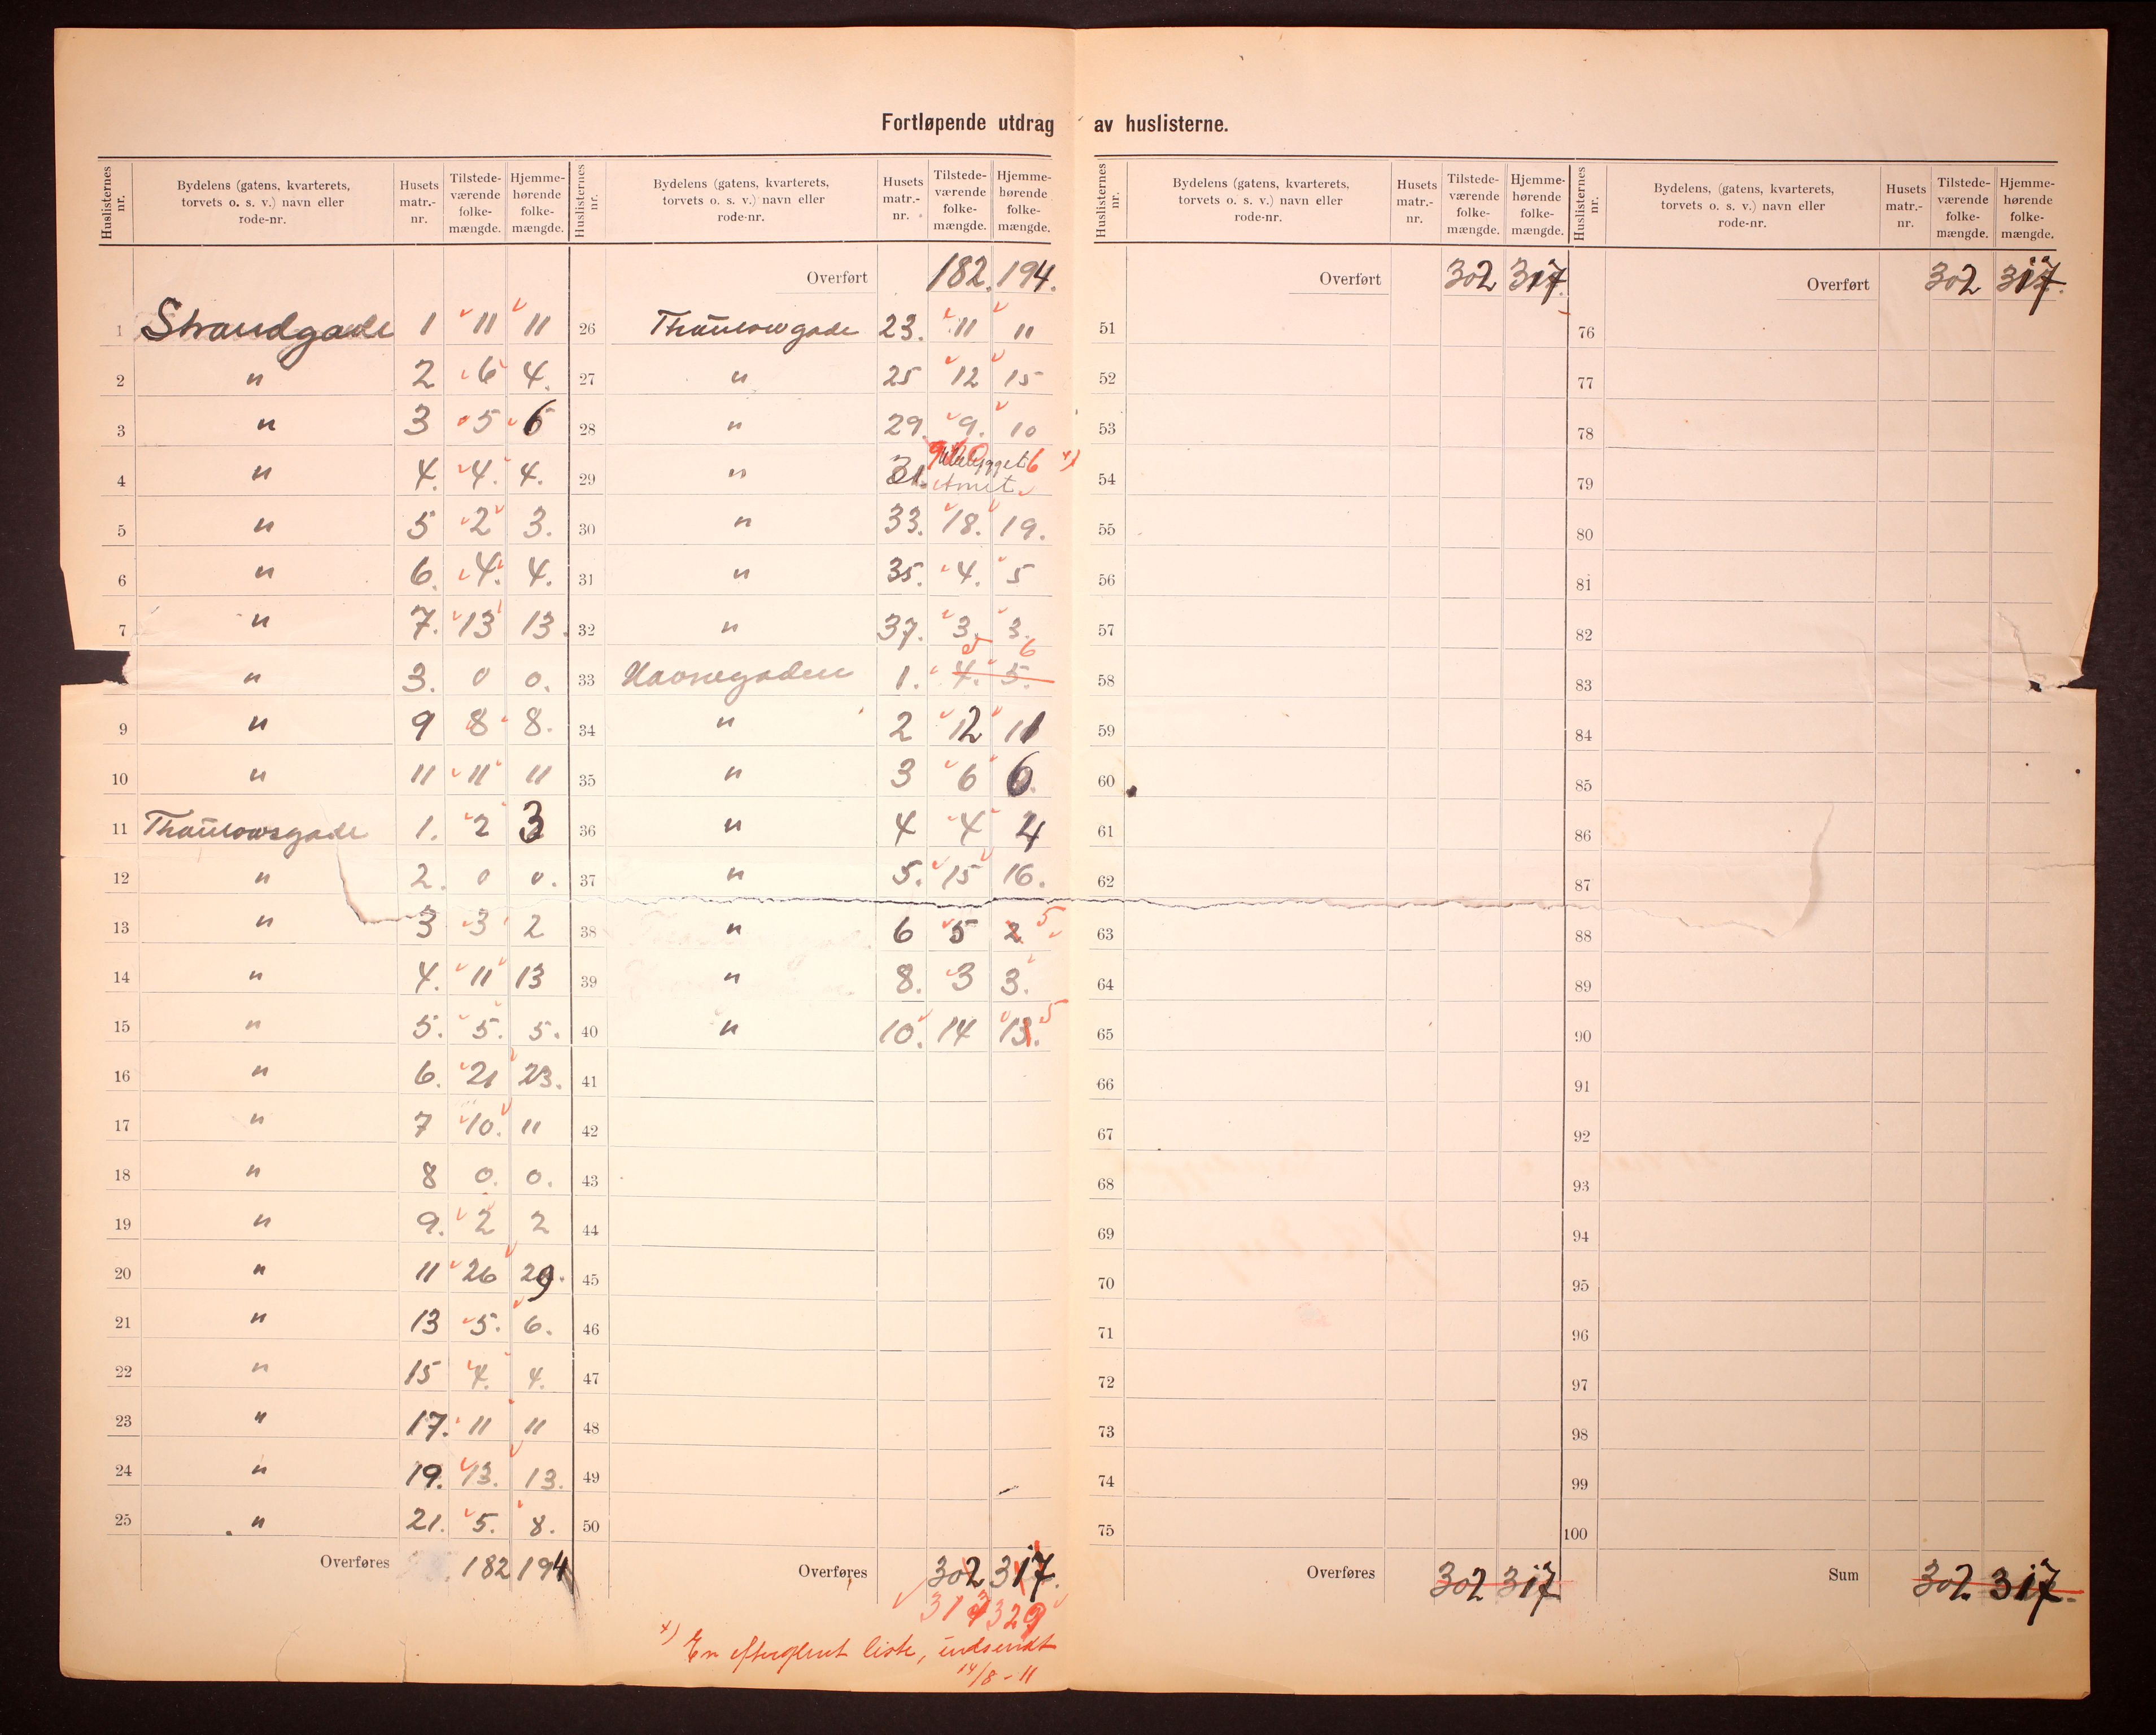 Fortløpende utdrag av huslisterne.
Huslisternes nr. Bydelens (gatens, kvarterets, torvets o. s. v.) navn eller rode-nr. Husets matr.-nr. Tilstedeværende folkemængde. Hjemmehørende folkemængde.
1 Strandgade 1 11 11
2 " 2 6 4.
3 " 3 5 6
4 " 4. 4. 4.
5 " 5 2 3.
6 " 6. 4. 4.
7 " 7. 13 13.
" 3. 0 0.
9 " 9 8 8.
10 " 11 11 11
11 Thaulowsgade 1. 2 3
12 " 2. 0 0.
13 " 3 3 2
14 " 4. 11 13
15 " 5. 5. 5.
16 " 6. 21 23.
17 " 7 10. 11
18 " 8 0. 0.
19 " 9. 2 2
20 " 11 26 29.
21 " 13 5. 6.
22 " 15 4. 4.
23 " 17. 11 11
24 " 19. 13. 13.
25 " 21. 5. 8.
Overføres 182 194
Huslisternes nr. Bydelens (gatens, kvarterets, torvets o. s. v.) navn eller rode-nr. Husets matr.-nr. Tilstedeværende folkemængde. Hjemmehørende folkemængde.
Overført 182. 194.
26 Thaulowgade 23. 11 11
27 " 25 12 15
28 " 29. 9. 10
29 " 31. Ubebygget 6 x)
tomt
30 " 33. 18. 19.
31 " 35. 4. 5
32 " 37. 3. 3.
5 6
33 Havnegaden 1. 4. 5.
34 " 2 12 11
35 " 3 6 6.
36 " 4 4 4
37 " 5. 15 16.
38 " 6 5 2 5
39 " 8. 3 3.
40 " 10. 14 13. 5
41
42
43
44
45
46
47
48
49
50
Overføres 302 317.
313 329
x) En efterglemt liste, indsendt
14/8 - 11
Huslisternes nr. Bydelens (gatens, kvarterets, torvets o. s. v.) navn eller rode-nr. Husets matr.-nr. Tilstedeværende folkemængde. Hjemmehørende folkemængde.
Overført 302 317.
51
52
53
54
55
56
57
58
59
60
61
62
63
64
65
66
67
68
69
70
71
72
73
74
75
Overføres 302 317
Huslisternes nr. Bydelens, (gatens, kvarterets, torvets o. s. v.) navn eller rode-nr. Husets matr.-nr. Tilstedeværende folkemængde. Hjemmehørende folkemængde.
Overført 302 317.
76
77
78
79
80
81
82
83
84
85
86
87
88
89
90
91
92
93
94
95
96
97
98
99
100
Sum 302 317.